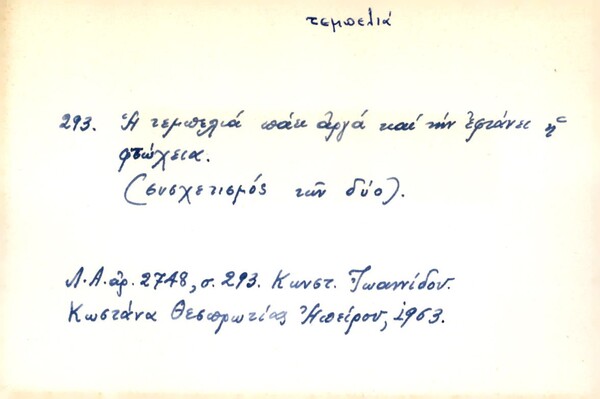 τεμπελιά
293. Ἡ τεμπελιά πάει ἀργά καί τήν ἐφτάνει ἡ
φτώχεια.
(συσχετισμός τῶν δύο).
Λ.Α. ἀρ. 2748, σ. 293. Κωνστ. Ἰωαννίδου.
Κωστάνα Θεσπρωτίας Ἠπείρου, 1963.